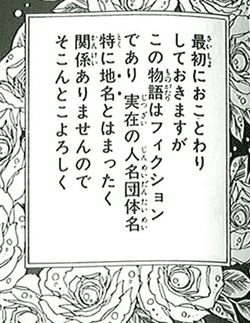 最初におことわり
しておきますが
この物語はフィクション
であり 実在の人名団体名
特に地名とはまったく
関係ありませんので
そこんとこよろしく